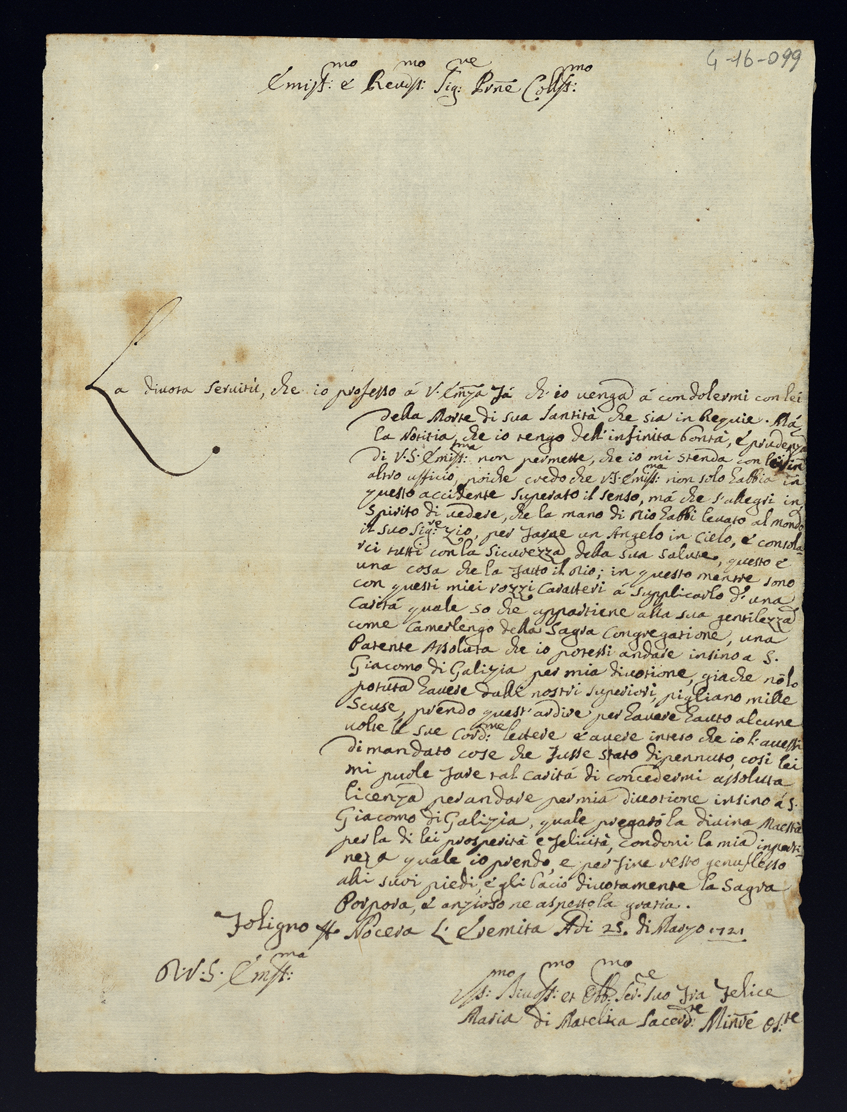 4-16-099
Emiss:mo é Reviss:mo Sig:re Prñe Colss:mo
La divota Servitù, che io professo á V: Emza fá ch' io venga á condolermi con lei
della Morte di sua Santità che sia in Requie. Má
la Notitia, che io tengo dell' infinita bontà, é prudenza
di V:S: Emiss:ma non permette, che io mi stenda con lei in
altro ufficio, poiche credo che V:S: Emiss:ma non solo habbia in
questo accidente superato il senso, má che s'allegri in
Spirito di vedere, che la mano di Dio habbi levato al mondo
il suo Sig:re Zio, per farne un Angelo in Cielo, é consola
rci tutti con la Sicurezza della sua salute, questo é
una cosa che la fatto il Dio; in questo mentre sono
con questi miei rozzi Caratteri á supplicarlo d' una
Carità quale so che appartiene alla sua gentilezza
come Camerlengo della Sagra Congregatione, una
Patente Assoluta che io potessi andare insino a S.
Giacomo di Galizia per mia divotione, giache no lo
potuta havere dalli nostri superiori, pigliano mille
Scuse, prendo quest' ardire per havere hauto alcune
volte le sue Cord:me lettere é avere inteso che io l' avessi
di mandato cose che fusse stato dipennuto, così lei
mi puole fare tal Carità di concedermi assoluta
licenza per andare per mia divotione insino á S:
Giacomo di Galizia, quale pregarò la divina Maestà
per la di lei prosperità é felicità, condoni la mia inperti
neza quale io prendo, e per fine resto genuflesso
alli suvi piedi, é gli bacio divotamente la Sagra
Porpora, é anzioso ne aspetto la grazia.
Foligno Nocera L' Eremita Adi 25. di Marzo 1721
D: V: S: Emiss:ma
Ser:re suo Fra Felice
Maria di Sacerd:te Minre Os:te